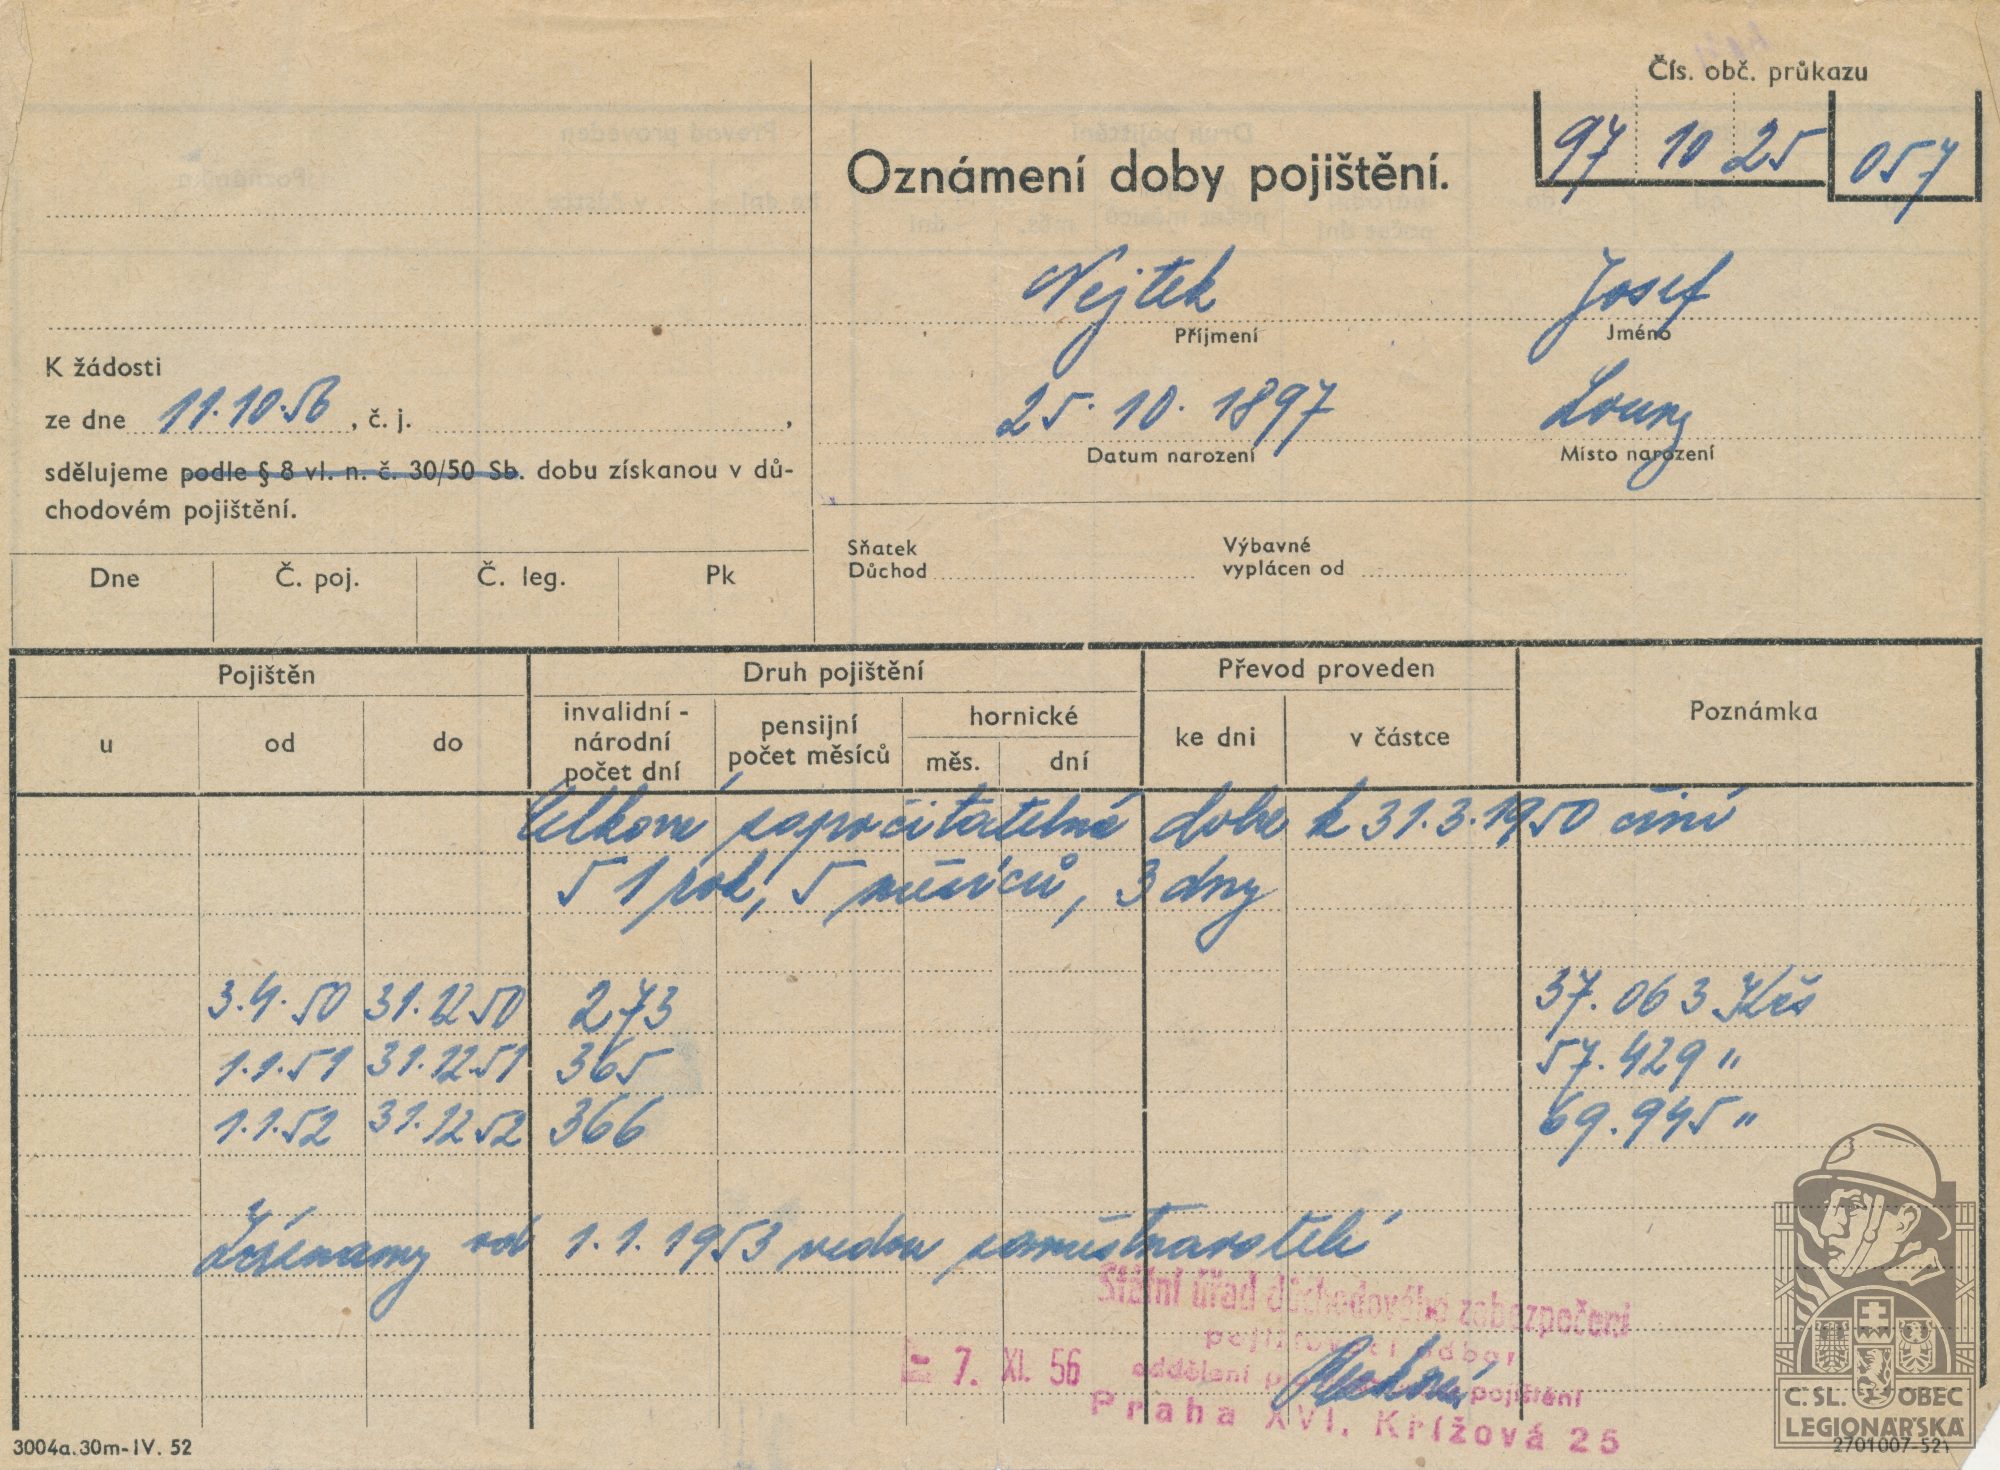 Čís. obč. průkazu
97 10 25 057
Oznámení doby pojištění.
Nejtek Josef
Příjmení Jméno
K žádosti
ze dne 11.10.56, č. j. ,
25. 10. 1897 Louny
Datum narození Místo narození
sdělujeme podle § 8 vl. n. č. 30/50 Sb. dobu získanou v dů-
chodovém pojištění.
Sňatek
Důchod
Výbavné
vyplácen od
Dne Č. poj. Č. leg. Pk
Pojištěn Druh pojištění Převod proveden Poznámka
u od do invalidní - národní počet dní pensijní počet měsíců hornické měs. dní ke dni v částce
Celková započitatelná doba k 31.3.1950 činí
51 rok, 5 měsíců, 3 dny
3.4.50 31.12.50 273 37.063 Kčs
1.1.51 31.12.51 365 57.429 "
1.1.52 31.12.52 366 69.945 "
Záznamy od 1.1.1953 vedou zaměstnavatelé
Státní úřad důchodového zabezpečení
pojišťovací odbor
- 7. XI. 56
oddělení pojištění
Praha XVI, Křížová 25
3004a.30m-IV. 52
2701007-52
Č. SL. OBEC
LEGIONÁŘSKÁ